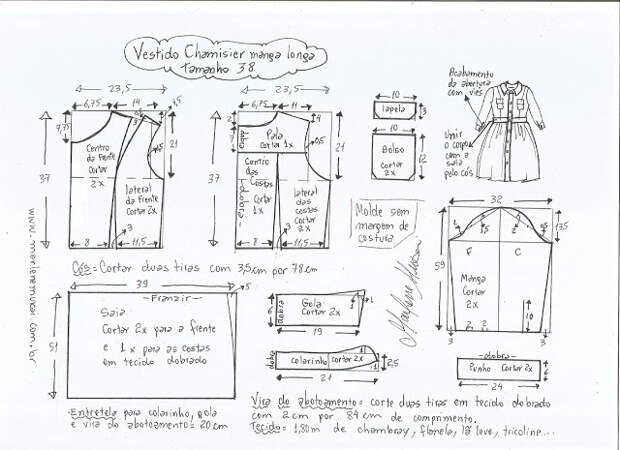 Vestido Chamisier manga longa
tamanho 38
23,5
6,75
14
4,5
7,75
3
1,5
21
37
Centro
da frente
cortar
2x
lateral da
frente
Cortar 2x
8
3
11,5
23,5
6,75
11
4
2
7
dobra
Pala
cortar 1x
0,5
21
37
Centro
das
Costas
cortar
1x
dobra
laterais
das costas
cortar 2x
8
3
11,5
10
lapela
3
10
Bolso
cortar
2x
12
Acabamento
da abertura
com viés
Unir
o corpo
com a
saia
pelo cós
Molde sem
margem de
costura
Marlene Mukai
32
13,5
59
F
C
Manga
Cortar
2x
10
2
2
3
3
www.marlenemukai.com.br
Cós = Cortar duas tiras com 3,5cm por 78cm
39
5
-Franzir-
Saia
Cortar 2x para a frente
e 1x para as costas
em tecido dobrado
51
dobra
Gola
Cortar 2x
1
19
dobra
colarinho
cortar 2x
1
2,5
21
-dobra-
Punho Cortar 2x
6
24
-Entretela para colarinho, gola
e vira do abotoamento = 20cm
Vira do abotoamento = corte duas tiras em tecido dobrado
com 2cm por 84cm de comprimento.
Tecido = 1,80m de chambray, flanela, lã leve, tricoline...